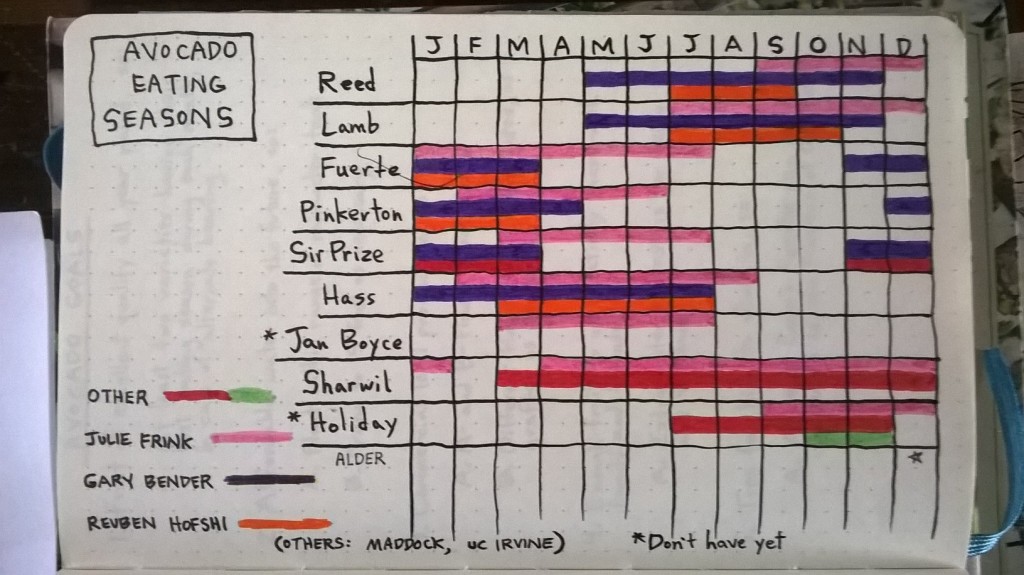 AVOCADO
EATING
SEASONS
J F M A M J J A S O N D
Reed
Lamb
Fuerte
Pinkerton
Sir Prize
Hass
* Jan Boyce
Sharwil
* Holiday
ALDER *
OTHER
JULIE FRINK
GARY BENDER
REUBEN HOFSHI
(OTHERS: MADDOCK, UC IRVINE) *Don't have yet